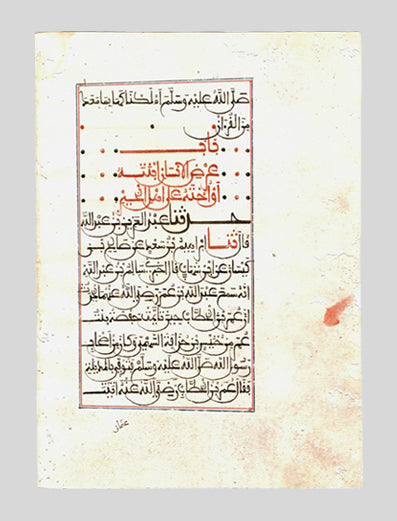 صلى الله عليه وسلم أملكناكها بما معك
من القرآن
باب
عرض الانسان ابنته
أو اخته على أهل الخير
حدثنا عبد العزيز بن عبد الله
قال حدثنا ابراهيم بن سعد عن صالح بن
كيسان عن ابن شهاب قال اخبرني سالم بن عبد الله
انه سمع عبد الله بن عمر رضي الله عنهما يحدث
ان عمر بن الخطاب حين تأيمت حفصة بنت
عمر من خنيس بن حذافة السهمي وكان من أصحاب
رسول الله صلى الله عليه وسلم فتوفي بالمدينة
فقال عمر بن الخطاب رضي الله عنه اتيت
عثمان